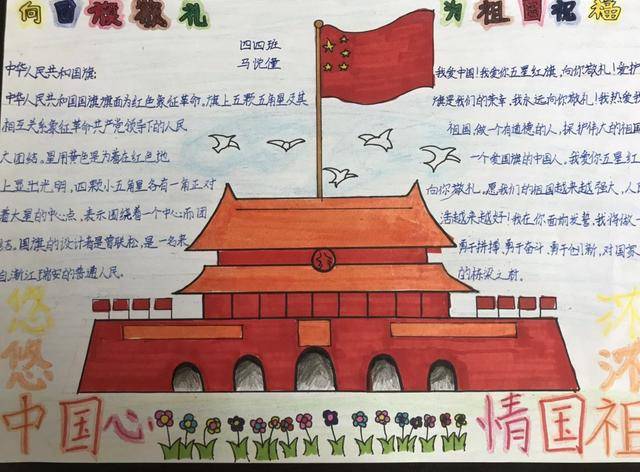 向国旗敬礼
为祖国祝福
四四班
中华人民共和国旗:
中华人民共和国国旗旗面为红色象征革命。旗上五颗五角星及其
相互关系象征革命共产党领导下的人民
大团结。星用黄色是为着在红色地
上显出光明，四颗小五角星各有一角正对
着大星的中心点，表示围绕着一个中心而团
结。国旗的设计者是曾联松，是一名来
自浙江瑞安的普通人民。
我爱中国!我爱你五星红旗，向你敬礼!爱护
旗是我们的荣幸，我永远向你敬礼!我热爱我
祖国，做一个有道德的人，保护伟大的祖国
一个爱国旗的中国人，我爱你五星红
向你敬礼，愿我们的祖国越来越强大，人民
活越来越好!我在你面前发誓，我将做一
勇于拼搏、勇于奋斗、勇于创新，对国家
的栋梁之材。
悠悠
中国心
浓浓
情国祖